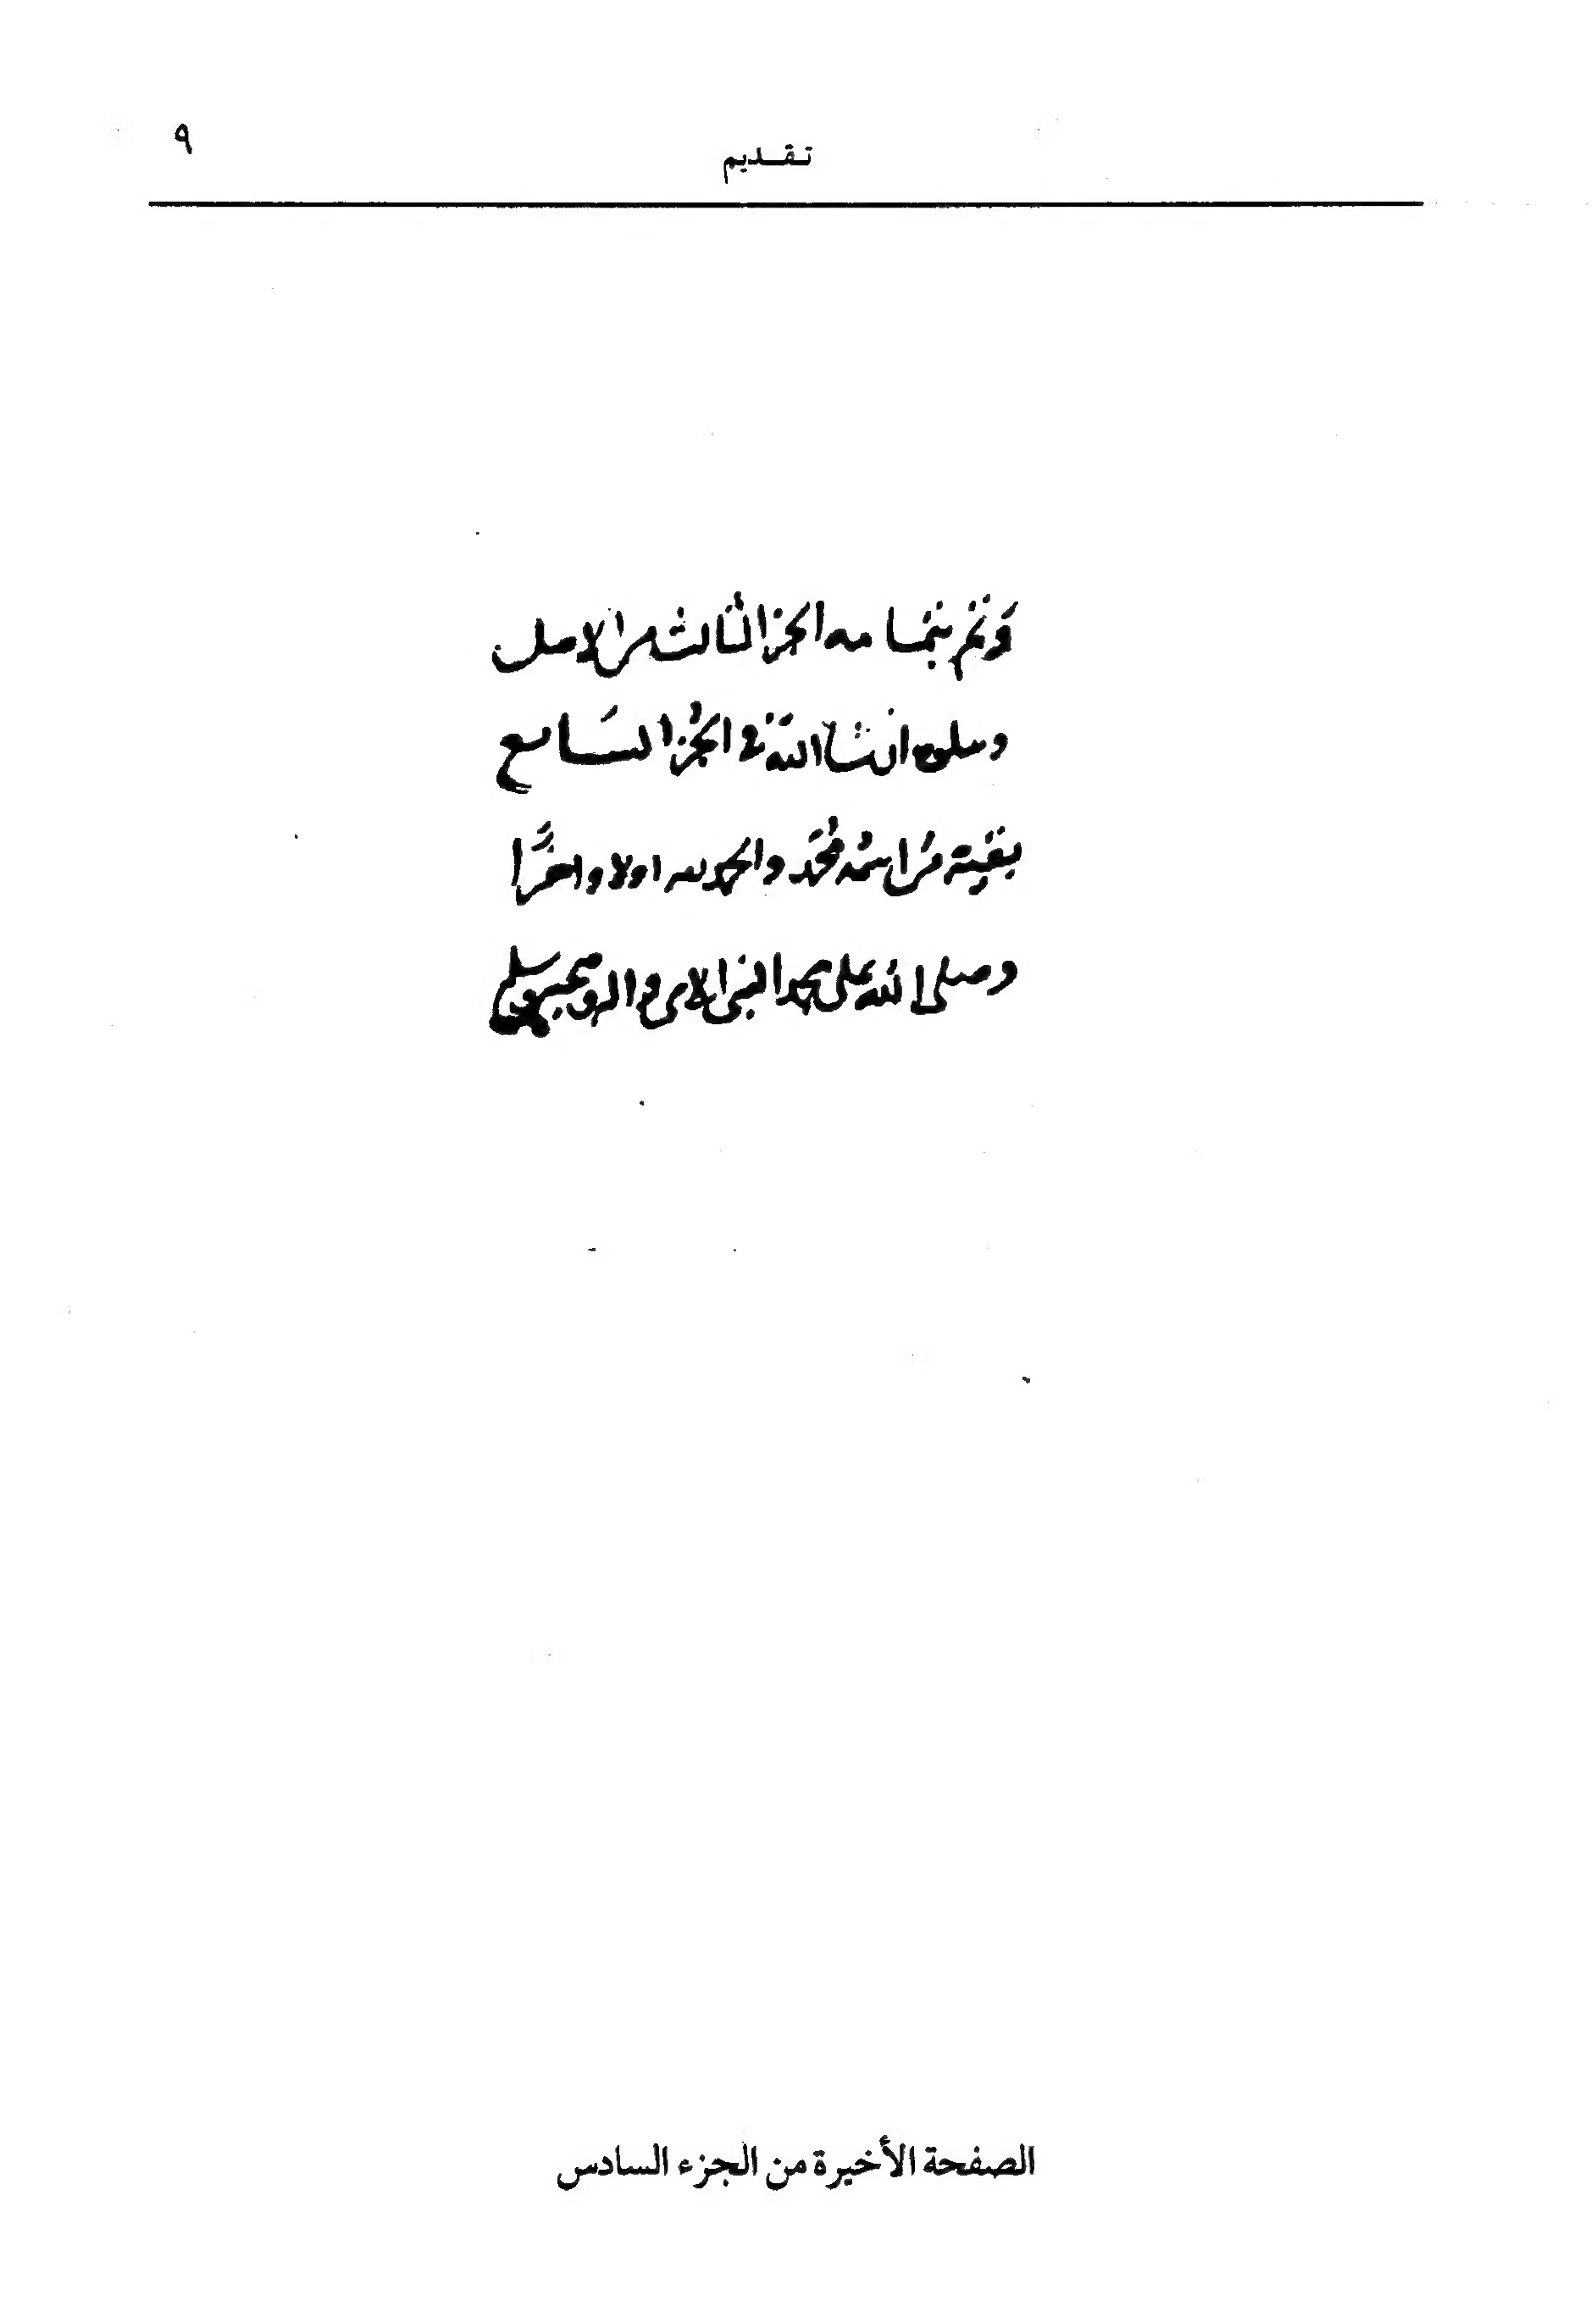 ٩
تقديم
وَتم بتمامه الجز الثالث من الاصل
وسلوه ان شا الله في الجُز السَابع
بقية من اسمه مُحَمد والحمد لله اولا واخرًا
وصلى الله على محمد النبي الامي واله وصحبه وسلم
الصفحة الأخيرة من الجزء السادس